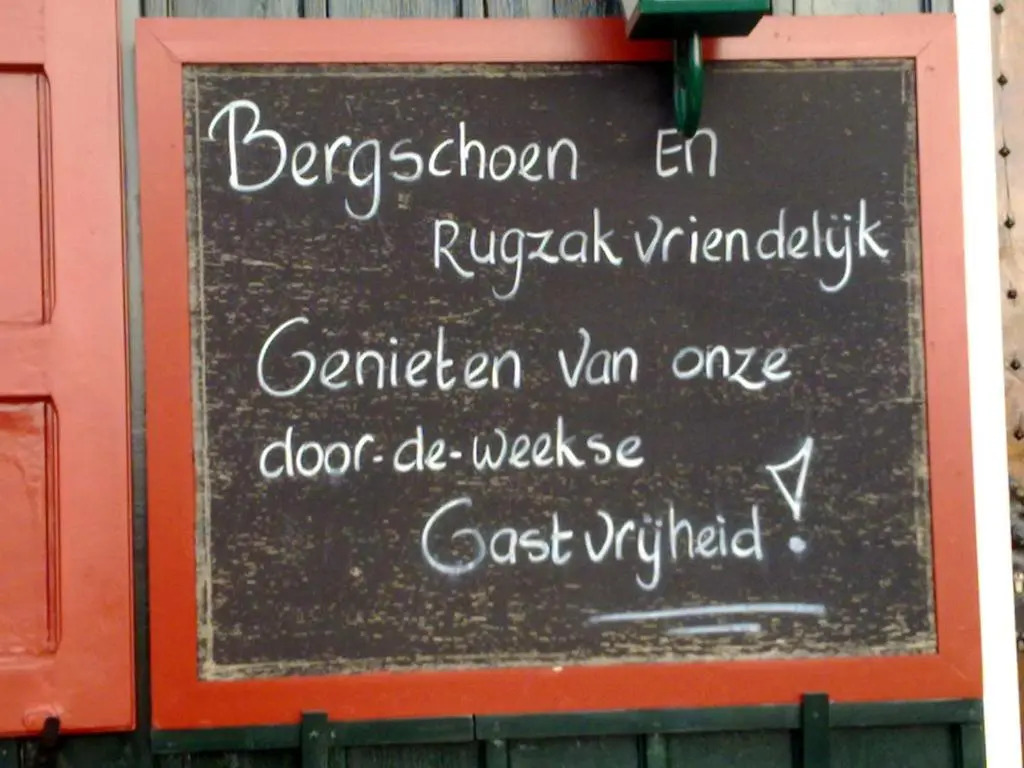 Bergschoen En
Rugzak vriendelijk
Genieten van onze
door-de-weekse
Gastvrijheid!